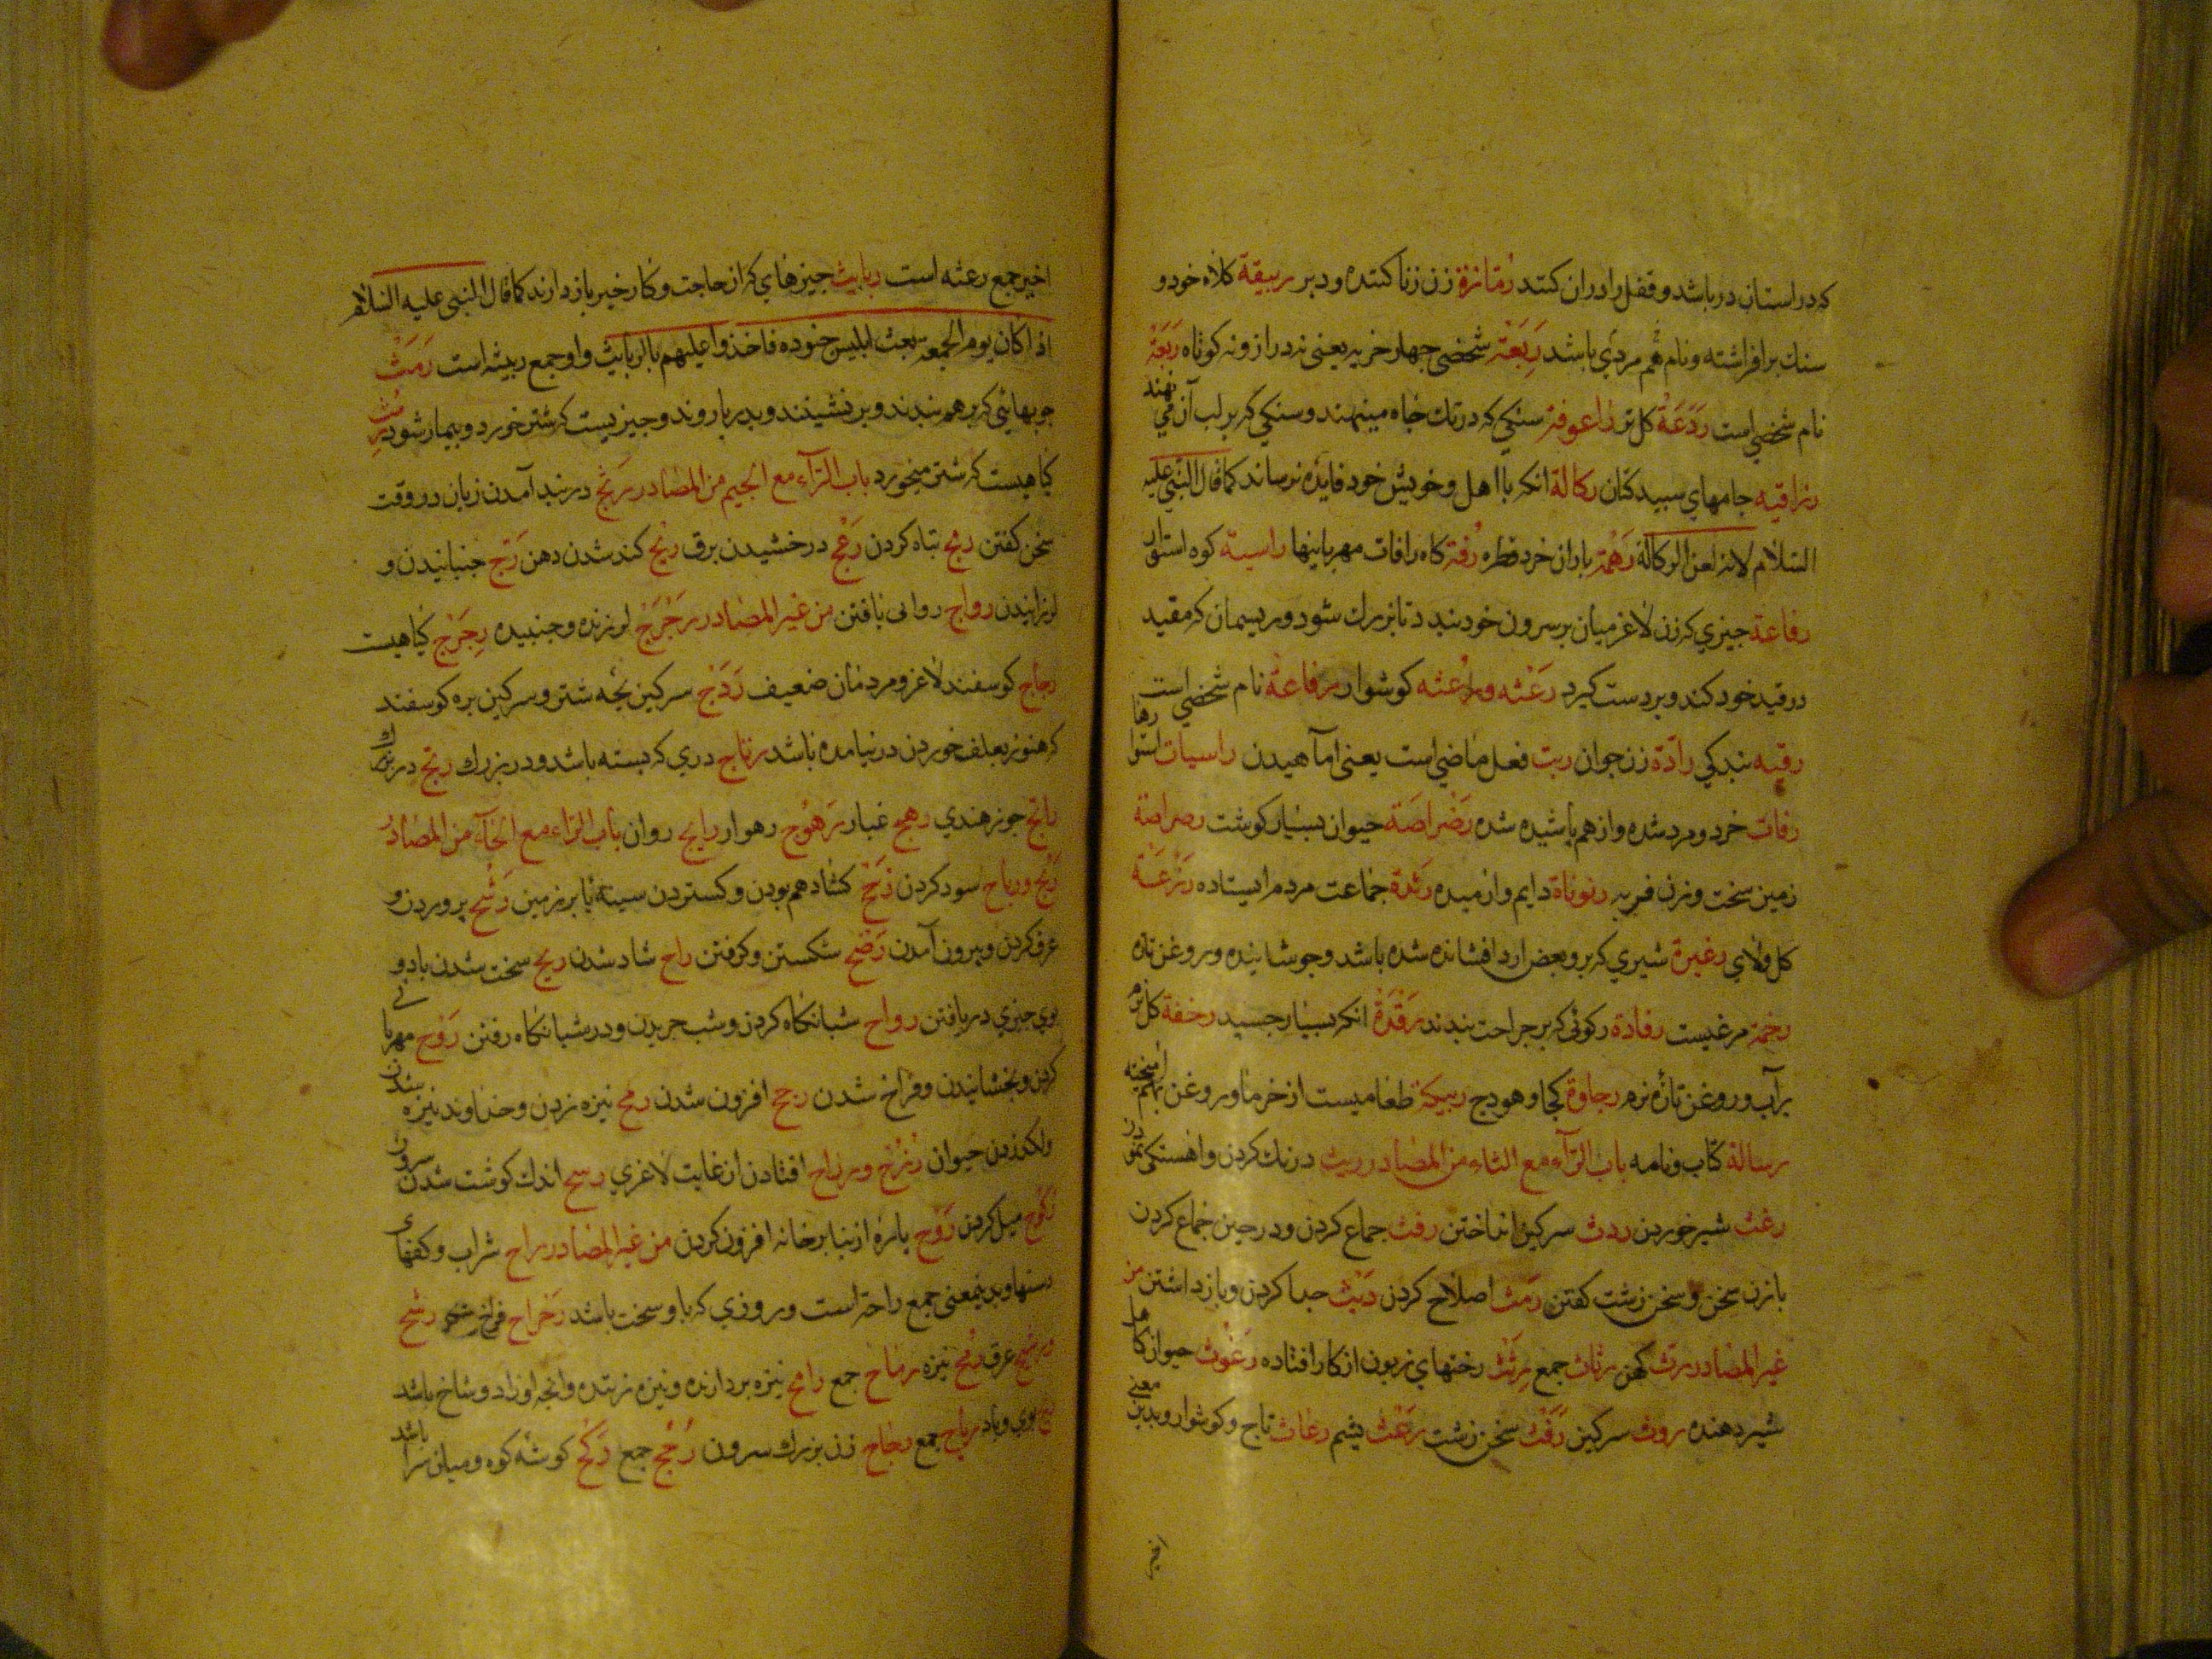 که در استان در باشد و قفل را در ان کنند رمّازة زن زنا کننده و دبر ربیقة کلاه خود و
سنك بر افراشته ونام هم مردی باشد ربعة شخصی چهار خریه یعنی نه دراز ونه کوتاه ربعة
نام شخصی است ردغة کل تر راعوفة سنکی که در تك جاه مینهند وسنکی که بر لب آن می نهند
رازقیه جامهای سبید کتان رکالة انکه با اهل و خویش خود فایده نرساند کما قال النبی علیه
السلام لانه لعن الرکالة رهمة باران خرد قطره رفة کاه رافات مهربانیها راسیة کوه استوار
رفاعة جیزی که زن لاغر میان بر سرون خود بندد تا بزرك شود وریسمان که مقید
در قید خود کند وبر دست کیرد رعثه و رعثه کوشوار رفاعة نام شخصی است
رقیه بندکی رادة زن جوان ربت فعل ماضی است یعنی اماهیدن راسیات استوارها
رفات خرد ومرد شده واز هم باشیده شده رضراضة حیوان بسیار کوشت رضراضة
زمین سخت وزن فربه رنوناة دایم وارمیده رثدة جماعت مردم ایستاده رزغة
کل ولای رغیرة شیری که بر وبعض ارد افشانده شده باشد وجوشانیده وروغن تازه
رخمة مرغیست رفادة رکوئی که بر جراحت بندند رقدة انکه بسیار جسبد رخفة کل نرم
بر آب وروغن تازه نرم رجاوة کجاوه هودج ربیکة طعامیست از خرما وروغن بهم امیخته
رسالة کتاب ونامه باب الرآء مع الثاء من المصادر ریث درنك کردن واهستکی نمودن
رغث شیر خوردن ردث سرکین انداختن رفث جماع کردن ودر حین جماع کردن
با زن سخن وسخن زشت کفتن رمث اصلاح کردن ربث جدا کردن وباز داشتن من
غیر المصادر رث کهن رثاث جمع رثث رختهای زبون از کار افتاده رغوث حیوان کاما
شیر دهنده روث سرکین رفث سخن زشت رعث بشم رعاث تاج وکوشوار وبدین معنی
اخیر
اخیر جمع رعثه است ربایث جیزهای که از حاجت وکار خیر باز دارند کما قال النبی علیه السلام
اذا کان یوم الجمعه بعث ابلیس جنوده فاخذوا علیهم بالربایث واو جمع ربیثه است رمث
جوبهائی که بر هم بندند وبر نشینند وبدریا روند وجیزیست که شتر خورد وبیمار شود رمث
کیاهیست که شتر میخورد باب الرآء مع الجیم من المصادر رتج در بند آمدن زبان در وقت
سخن کفتن رمج تباه کردن رعج درخشیدن برق رتج کند شدن دهن رج جنبانیدن و
لرزانیدن رواج روائی یافتن من غیر المصادر رجرج لرزنده وجنبیده رجرج کیاهیست
رجاج کوسفند لاغر ومردمان ضعیف ردج سرکین بجه شتر وسرکین بره کوسفند
که هنوز بعلف خوردن در نیامده باشد رتاج دری که بسته باشد ودر بزرك رتج در بزرك
رانج جوز هندی رهج غبار رهوج رهوار رایج روان باب الراء مع الحآء من المصادر
ربح ورباح سود کردن رح کشاد هم بودن وکستردن سینه پا بر زمین رشح پروردن و
عرق کردن وبیرون آمدن رضح شکستن وکوفتن راح شاد شدن ریح سخت شدن باد و
بوی جیزی دریافتن رواح شبانکاه کردن وشب جریدن ودر شبانکاه رفتن روح مهربانی
کردن وبخشانیدن وفراخ شدن رجح افزون شدن رمح نیزه زدن وخداوند نیزه شدن
ولکد زدن حیوان رزوح ورزاح افتادن از غایت لاغری رسح اندك کوشت شدن سرون
رکوح میل کردن ردح پاره از بنا بر خانه افزون کردن من غیر المصادر راح شراب وکفهای
دستها وبدینمعنی جمع راحة است وروزی که با و سخت باشد رحراح فراخ رشح
عرق رمح نیزه رماح جمع رامح نیزه بردارنده ونیزه زننده وانجه اورا دو شاخ باشد
ریح بوی وباد ریاح جمع رجاح زن بزرك سرون رجح جمع رکح کوشه کوه ومیان سرا باشد